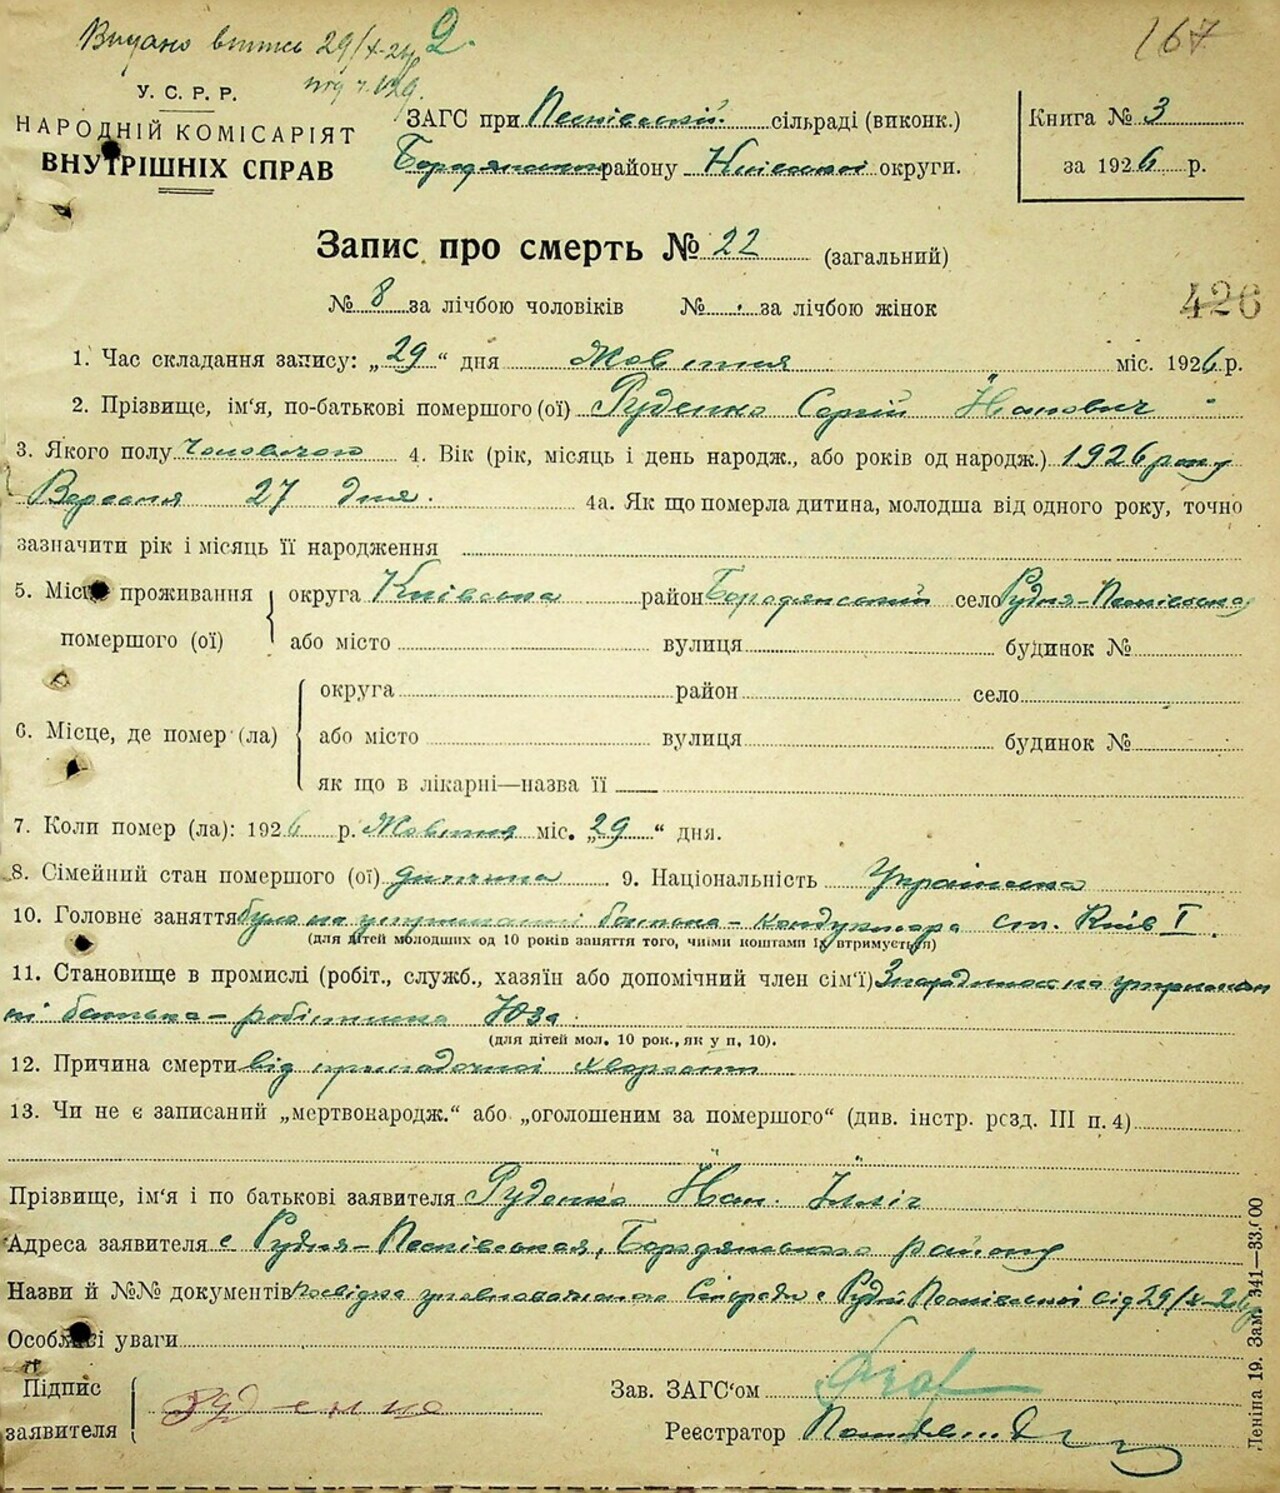 Видано витяг 29/X-26 р.
167
У. С. Р. Р.
НАРОДНІЙ КОМІСАРІЯТ
ВНУТРІШНІХ СПРАВ
ЗАГС при Пісківській сільраді (виконк.)
Бородянського району Київської округи.
Книга № 3
за 1926 р.
Запис про смерть № 22 (загальний)
№ 8 за лічбою чоловіків № за лічбою жінок
426
1. Час складання запису: „29“ дня Жовтня міс. 1926 р.
2. Прізвище, ім‘я, по-батькові помершого (ої) Руденко Сергій Йванович
3. Якого полу Чоловічого 4. Вік (рік, місяць і день народж., або років од народж.) 1926 року
Вересня 27 дня. 4а. Як що померла дитина, молодша від одного року, точно
зазначити рік і місяць її народження
5. Місце проживання помершого (ої) округа Київська район Бородянський село Рудня-Пісківська
або місто вулиця будинок №
6. Місце, де помер (ла) округа район село
або місто вулиця будинок №
як що в лікарні—назва її
7. Коли помер (ла): 1926 р. Жовтня міс. „29“ дня.
8. Сімейний стан помершого (ої) дитина 9. Національність Українська
10. Головне заняття було на утриманні батька - кондуктора ст. Київ I.
(для дітей молодших од 10 років заняття того, чиїми коштами їх втримується)
11. Становище в промислі (робіт., служб., хазяїн або допомічний член сім‘ї) Знаходився на утриман
ні батька - робітника ЮЗа
(для дітей мол. 10 рок., як у п. 10).
12. Причина смерти від припадочної хворости
13. Чи не є записаний „мертвонародж.“ або „оголошеним за помершого“ (див. інстр. розд. III п. 4)
Прізвище, ім‘я і по батькові заявителя Руденко Йван Ілліч
Адреса заявителя с Рудня-Пісківська, Бородянського району
Назви й №№ документів Посвідка уповноваженого Сільради с Рудні Пісківської від 29/X-26 р
Особливі уваги
Підпис
заявителя Руденко
Зав. ЗАГС‘ом
Реєстратор
Леніна 19. Зам. 341—33.000